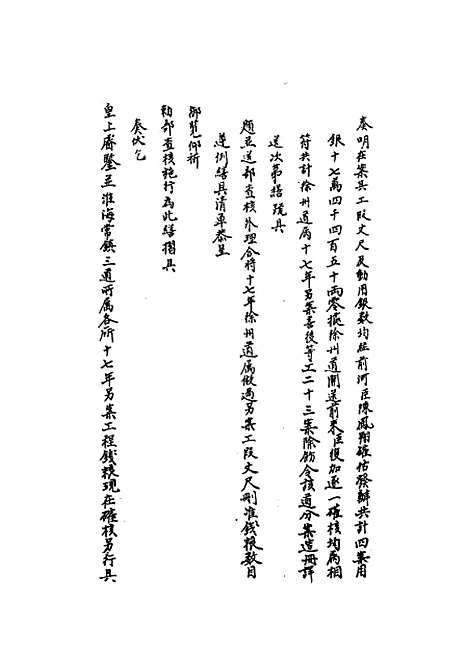 奏明在案其工段丈尺及動用銀數均經前河臣陳鳳翔確估發辦共計四案用
銀十七萬四千四百五十兩零據徐州道開送前來臣復加逐一確核均屬相
符共計徐州道屬十七年另案善後等工二十三案除飭令該道分案造冊詳
送次第繕疏具
題並送部查核外理合將十七年徐州道屬做過另案工段丈尺刪准錢粮數目
遵例繕具清單恭呈
御覽仰祈
勅部查核施行為此繕摺具
奏伏乞
皇上睿鑒至淮海常鎮三道所屬各所十七年另案工程錢粮現在確核另行具